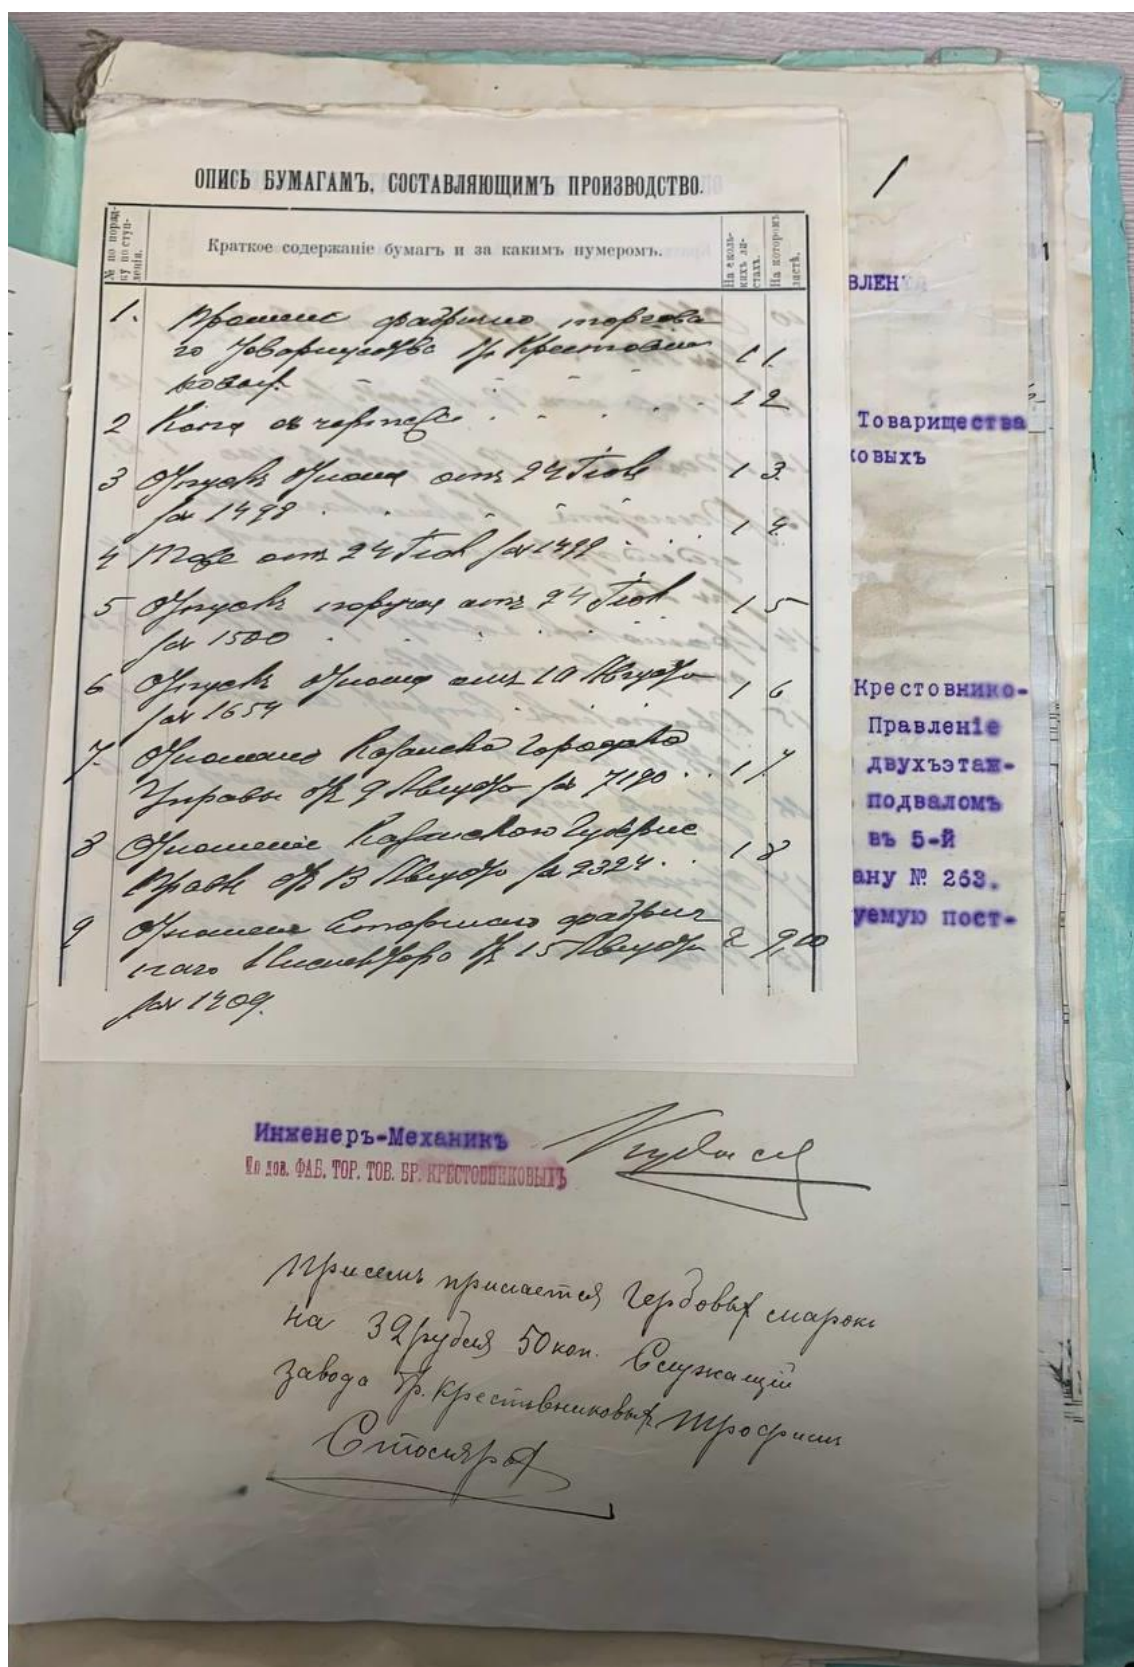 1
ОПИСЬ БУМАГАМЪ, СОСТАВЛЯЮЩИМЪ ПРОИЗВОДСТВО.
№ по поряд-
ку поступ-
ленія.
Краткое содержаніе бумагъ и за какимъ нумеромъ.
На сколь-
кихъ ли-
стахъ.
На которомъ
листѣ.
1. Прошеніе фабрично торгова
го Товарищества Бр Крестовни
ковыхъ. 1 1.
2 Копія съ чертежа 1 2
3 Отпускъ отнош отъ 24 Іюля
за 1498 1 3.
4 Тоже отъ 24 Іюл за 1499 1 4.
5 Отпускъ отъ 24 Іюл
за 1500 1 5
6 Отпускъ отнош отъ 10 Августа
за 1654 1 6
7. Отношеніе Казанской Городской
Управы от 9 Августа за 7190 1 7.
8 Отношеніе Казанскаго Губернс
Правл от 13 Августа за 2324 1 8
9 Отношеніе Старшаго фабрич
наго Инспектора от 15 Августа 2 9,10
за 1409.
ВЛЕНІЯ
Товарищества
ковыхъ
Крестовнико-
Правленіе
двухъэтаж-
подваломъ
въ 5-й
ану № 263.
уемую пост-
Инженеръ-Механикъ
По дов. ФАБ. ТОР. ТОВ. БР. КРЕСТОВНИКОВЫХЪ
При семъ прилается Гербовых марокъ
на 32 рубля 50 коп. Служащій
завода Бр. Крестовниковых Трофимъ
Столяров